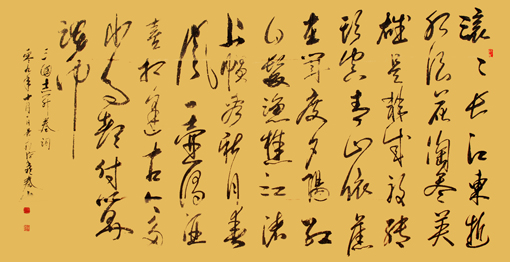 滚〻长江東逝
水浪花淘尽英
雄是非成败转
头空青山依旧
在几度夕阳红
白髮渔樵江渚
上惯看秋月春
风一壶浊酒
喜相逢古今多
少事都付笑
谈中
三国